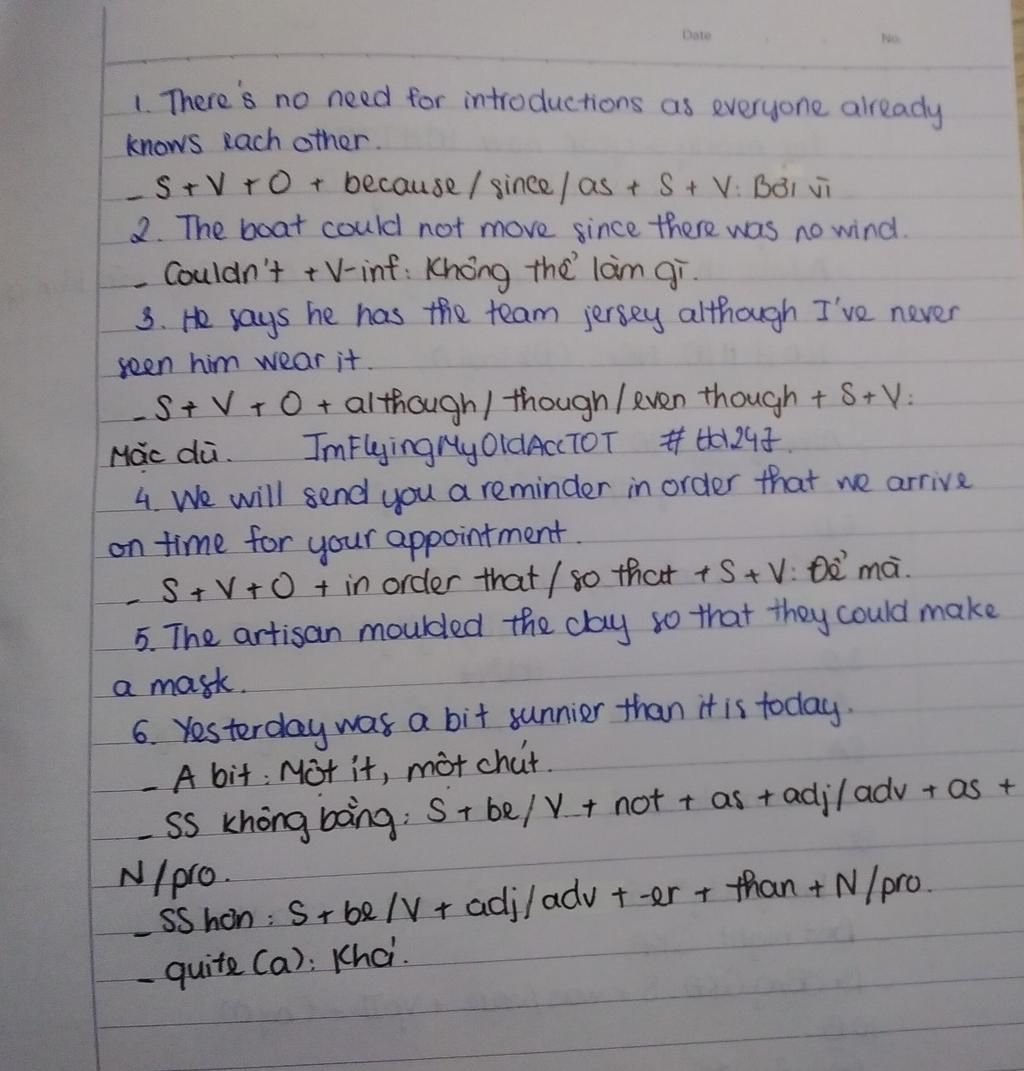 Date No.
1. There's no need for introductions as everyone already
knows each other.
- S + V + O + because / since / as + S + V: Bởi vì
2. The boat could not move since there was no wind.
- Couldn't + V-inf: Không thể làm gì.
3. He says he has the team jersey although I've never
seen him wear it.
- S + V + O + although / though / even though + S + V:
Mặc dù. ImFlyingMyOldAccTOT
4. We will send you a reminder in order that we arrive
on time for your appointment.
- S + V + O + in order that / so that + S + V: Để mà.
5. The artisan moulded the clay so that they could make
a mask.
6. Yesterday was a bit sunnier than it is today.
- A bit: Một ít, một chút.
- SS không bằng: S + be / V + not + as + adj / adv + as +
N / pro.
- SS hơn: S + be / V + adj / adv + -er + than + N / pro.
- quite (a): Khá.